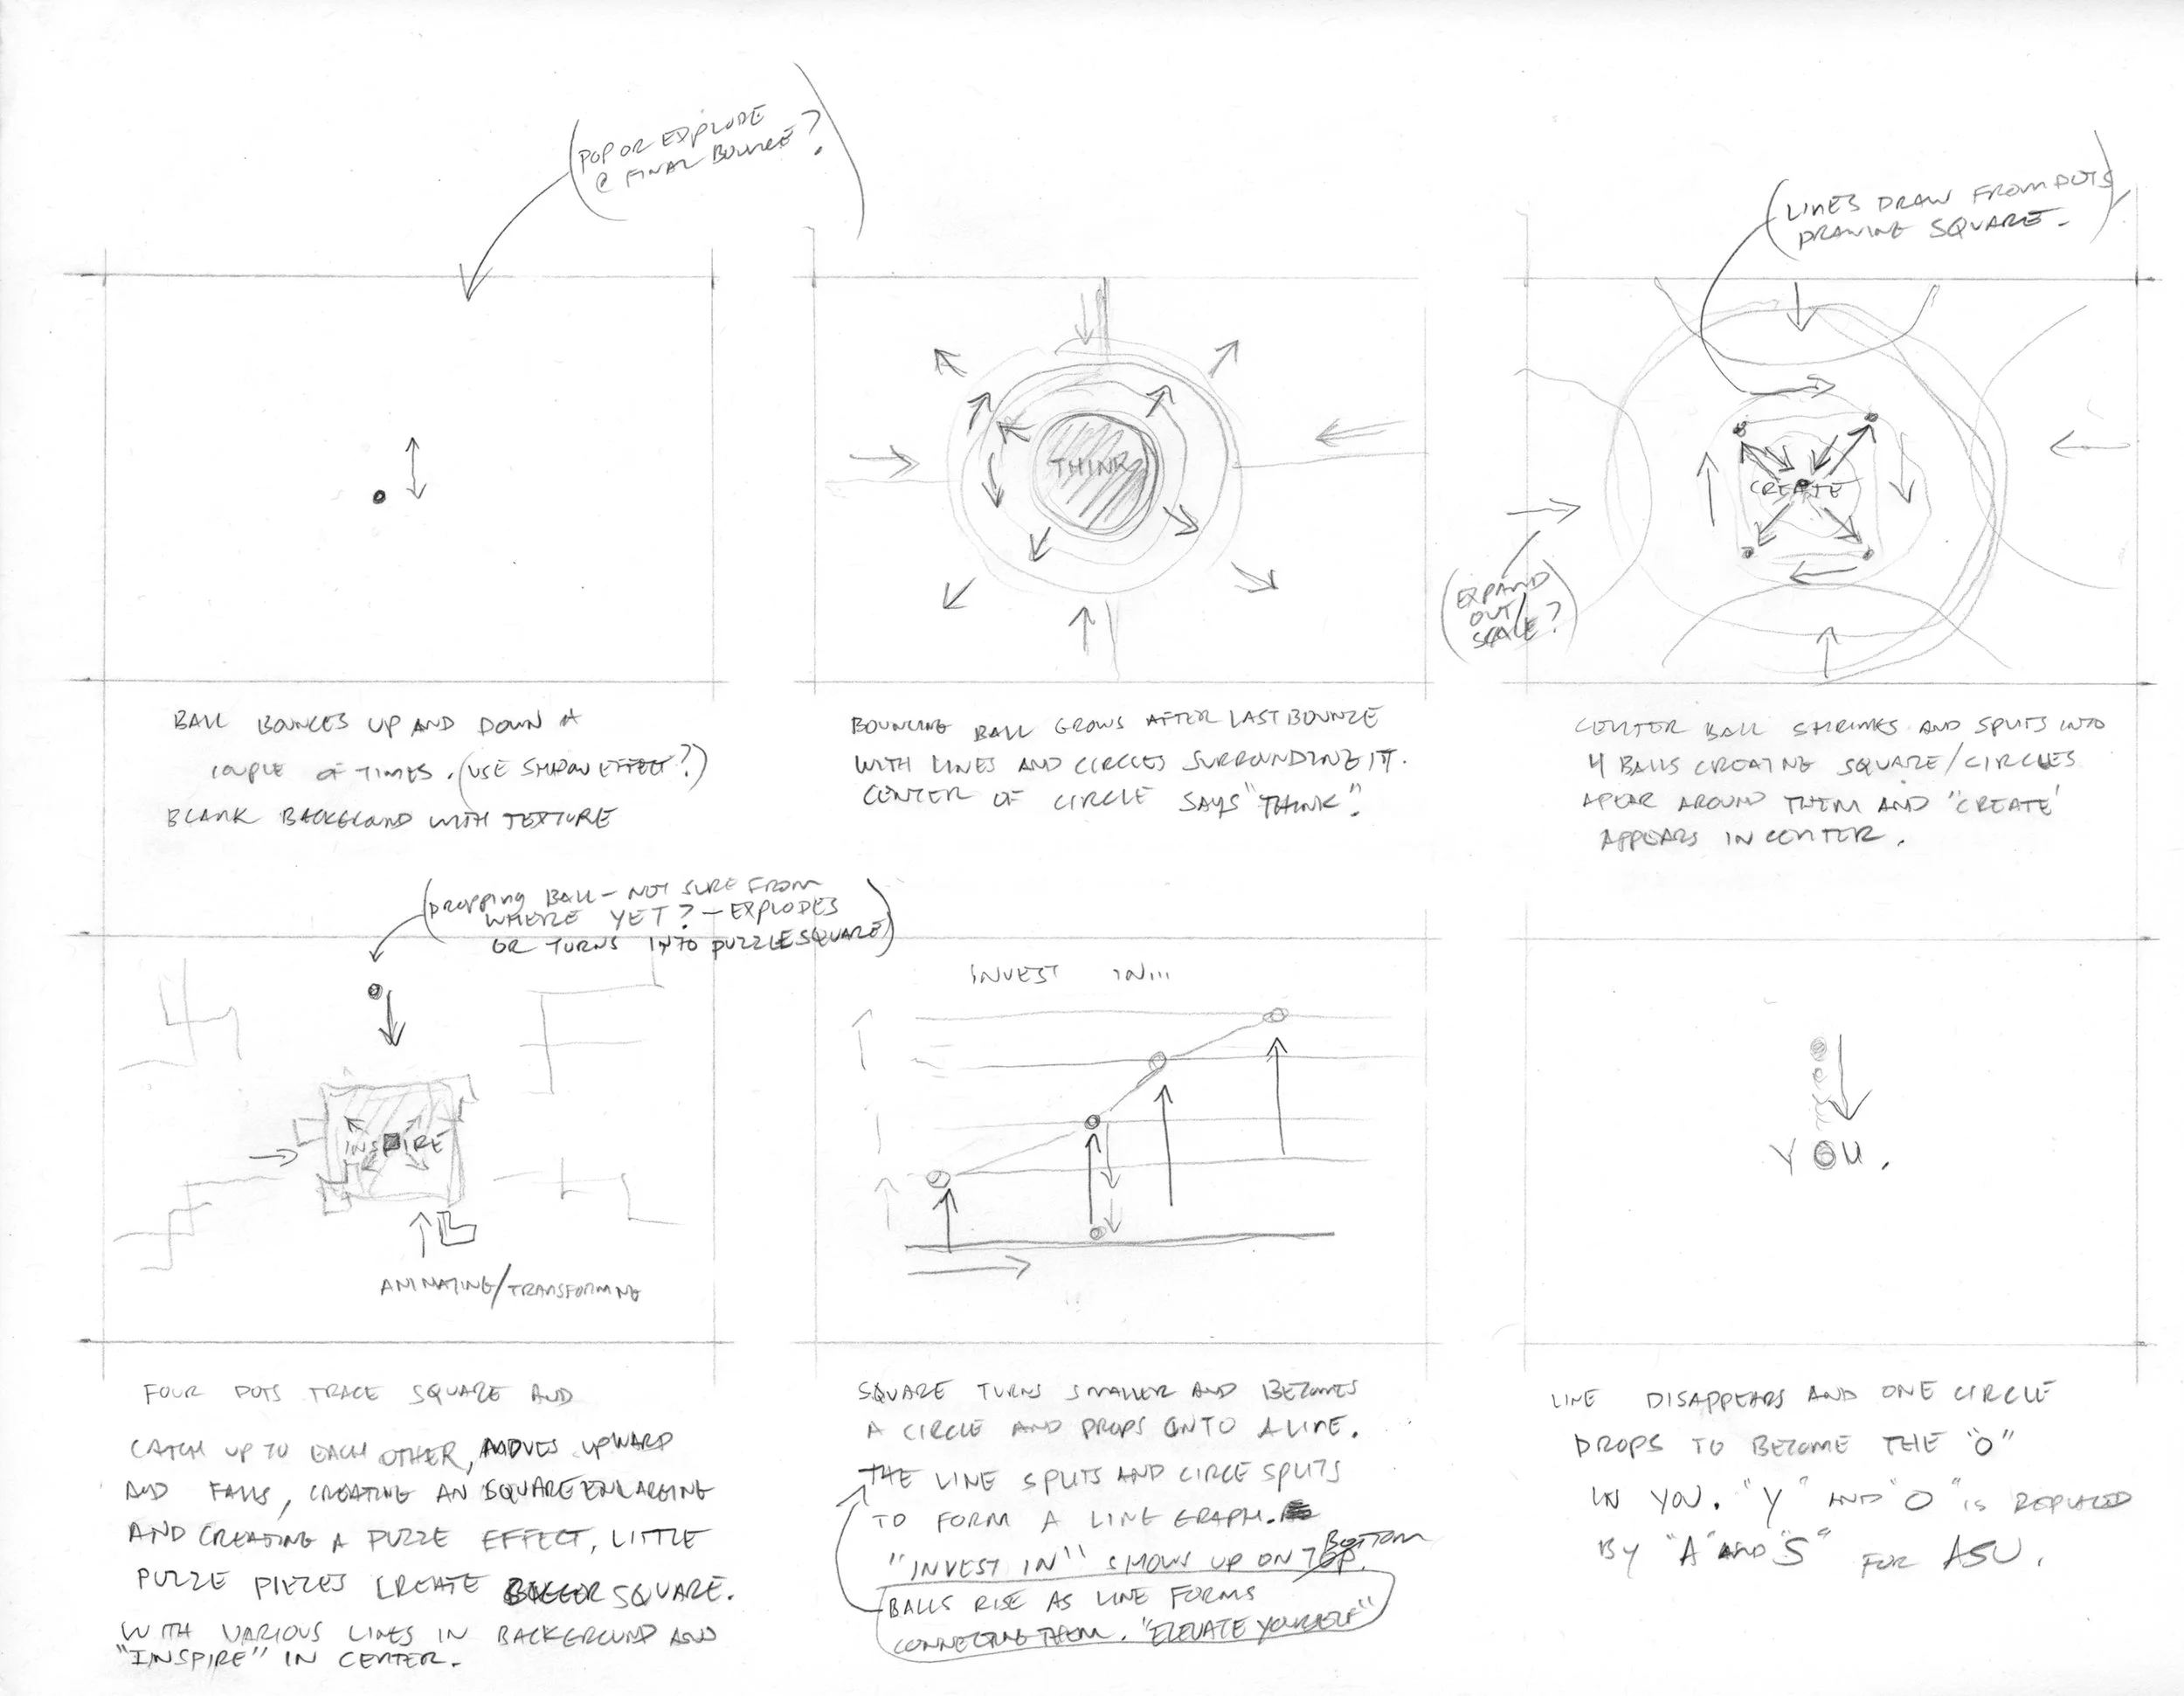 (POP OR EXPLODE
@ FINAL BOUNCE?)
(LINES DRAW FROM DOTS
DRAWING SQUARE.)
THINK
CREATE
(EXPAND
OUT/
SCALE?)
BALL BOUNCES UP AND DOWN A
COUPLE OF TIMES. (USE SHADOW EFFECT?)
BLANK BACKGROUND WITH TEXTURE
BOUNCING BALL GROWS AFTER LAST BOUNCE
WITH LINES AND CIRCLES SURROUNDING IT.
CENTER OF CIRCLE SAYS "THINK".
CENTER BALL SHRINKS AND SPLITS INTO
4 BALLS CREATING SQUARE/CIRCLES
APEAR AROUND THEM AND "CREATE"
APPEARS IN CENTER.
(DROPPING BALL - NOT SURE FROM
WHERE YET? - EXPLODES
OR TURNS INTO PUZZLE SQUARE)
INSPIRE
ANIMATING/TRANSFORMING
INVEST IN...
YOU.
FOUR DOTS TRACE SQUARE AND
CATCH UP TO EACH OTHER, MOVES UPWARD
AND FALLS, CREATING AN SQUARE ENLARGING
AND CREATING A PUZZE EFFECT, LITTLE
PUZZE PIEZES CREATE BIGGER SQUARE.
WITH VARIOUS LINES IN BACKGROUND AND
"INSPIRE" IN CENTER.
SQUARE TURNS SMALLER AND BECOMES
A CIRCLE AND DROPS ONTO A LINE.
THE LINE SPLITS AND CIRCE SPLITS
TO FORM A LINE GRAPH.
"INVEST IN" SHOWS UP ON TOP. BOTTOM
BALLS RISE AS LINE FORMS
CONNECTING THEM. "ELEVATE YOURSELF"
LINE DISAPPEARS AND ONE CIRCLE
DROPS TO BECOME THE "O"
IN YOU. "Y" AND "O" IS REPLACED
BY "A" AND "S" FOR ASU.